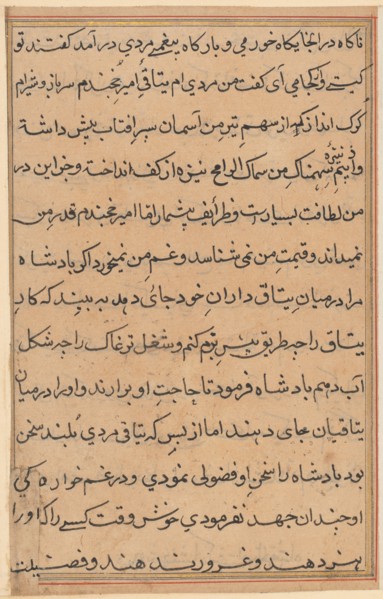 ناکاه در انجایکاه خورمی و بارکاه بیغمی مردی در آمد کفتند تو
کیستی و از کجا می آی کفت من مردی ام یتاقی امیر خجندم سرباز و شیرام
کرک انداز که از سهم تیر من آسمان سپر افتاب پیش داشته
و از بیم نیزه سهمناک من سماک الرامح نیزه از کف انداخته وجز این در
من لطافت بسیارست و ظرایف بیشمار اما امیر خجندم قدر من
نمیداند و قیمت من نمی شناسد و غم من نمیخورد اکر بادشاه
مرا در میان یتاق داران خود جای دهد به بیند که کار
یتاق را چه طریق پیش برم کنم و شغل ترغاک را چه شکل
آب دهم بادشاه فرمود تا حاجت او برارند و او را در میان
یتاقیان جای دهند اما از بس که یتاقی مردی بلند سخن
بود بادشاه را سخن او فضولی نمودی و در غم خواره کی
او چندان جهد نفرمودی خوش وقت کسی را که او را
هنر دهند و غرور ندهند و فضیلت